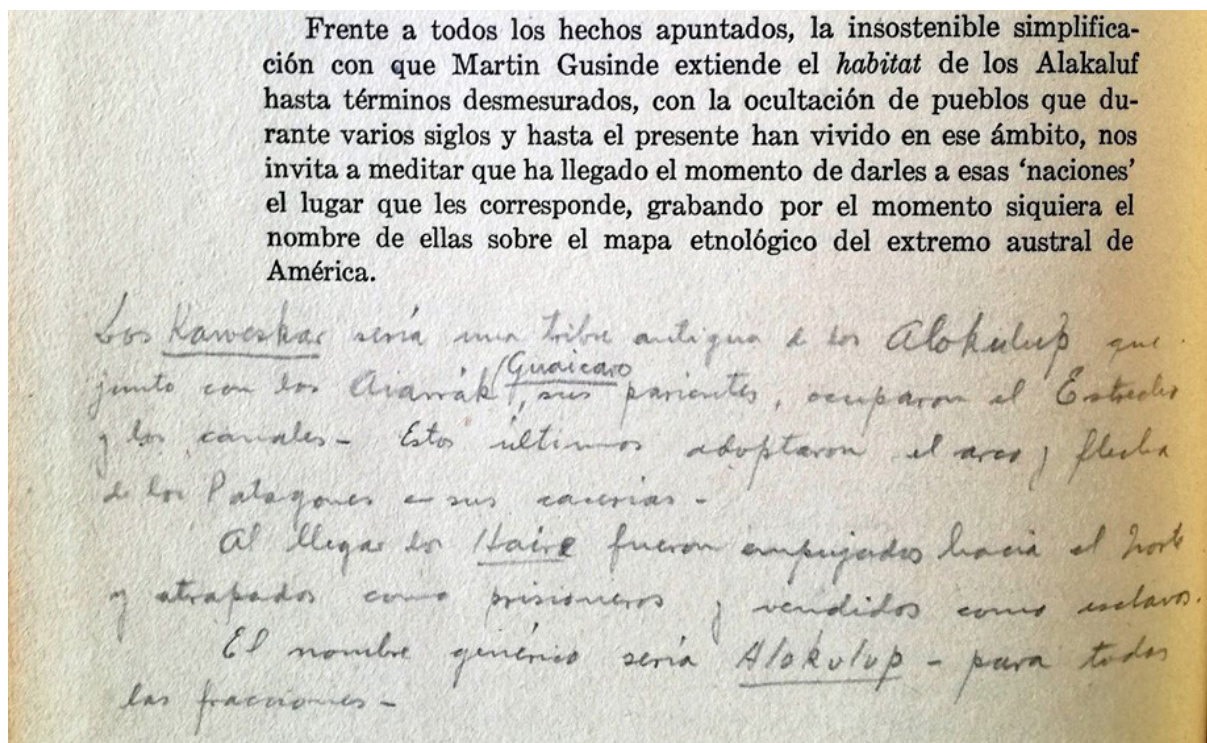 Frente a todos los hechos apuntados, la insostenible simplifica-
ción con que Martin Gusinde extiende el habitat de los Alakaluf
hasta términos desmesurados, con la ocultación de pueblos que du-
rante varios siglos y hasta el presente han vivido en ese ámbito, nos
invita a meditar que ha llegado el momento de darles a esas ‘naciones’
el lugar que les corresponde, grabando por el momento siquiera el
nombre de ellas sobre el mapa etnológico del extremo austral de
América.
Los Kaweskar sería una tribu antigua de los Alokulup que
Guaicaro
junto con los, sus parientes, ocuparon el Estrecho
y los canales - Estos últimos adoptaron el arco y flecha
de los Patagones en sus cacerías -
Al llegar los Haire fueron empujados hacia el norte
y atrapados como prisioneros y vendidos como esclavos.
El nombre genérico sería Alokulup - para todas
las fracciones -